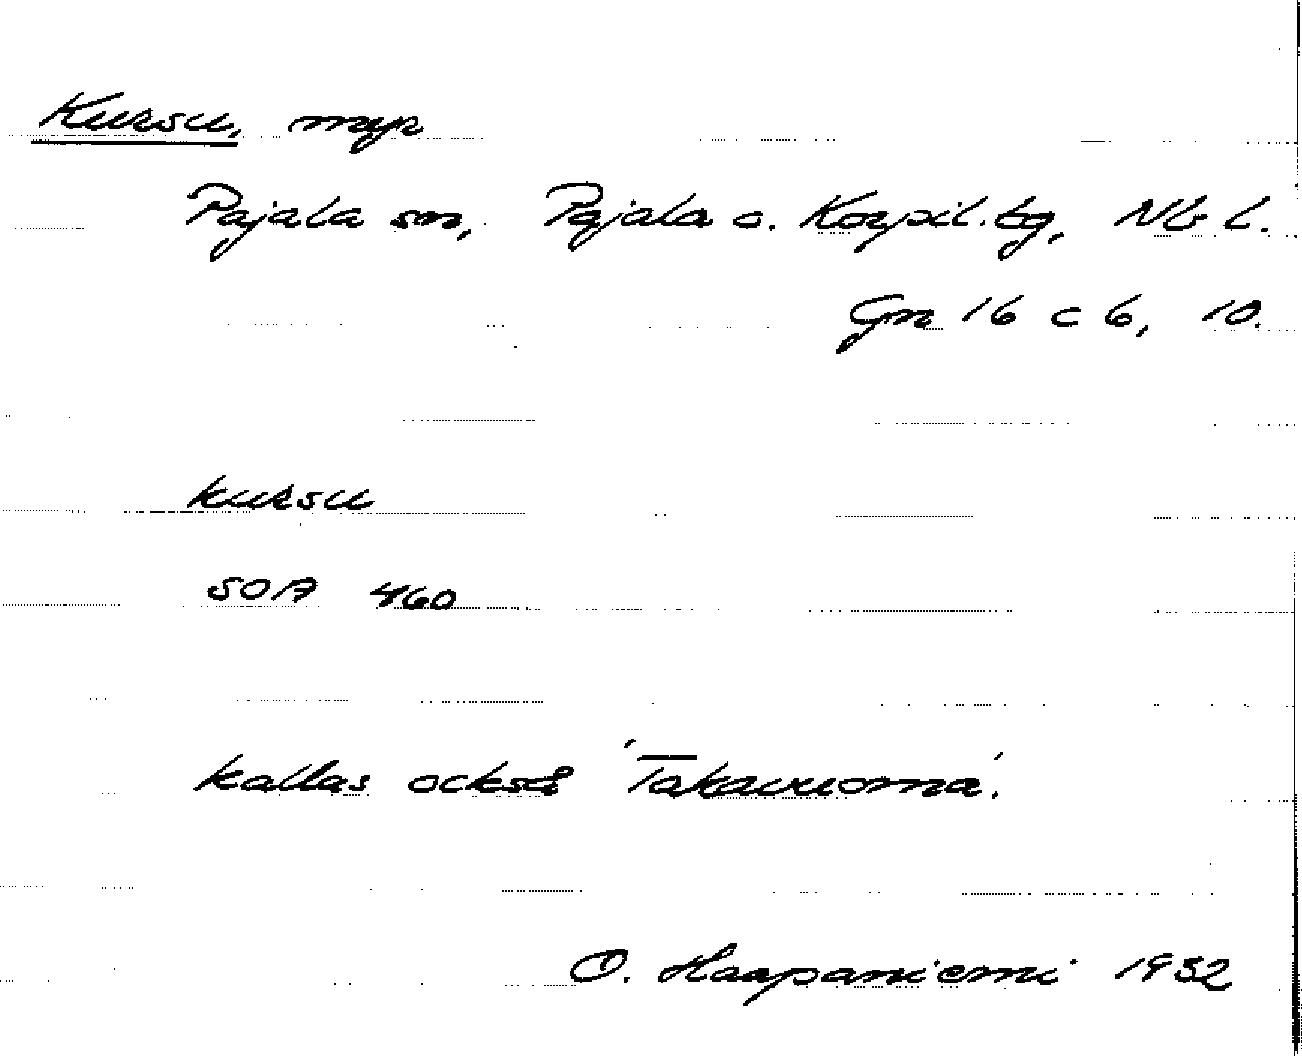 Kursu, myr
Pajala sn, Pajala o. Korpil. tg, Nb L.
Gn 16 c 6, 10.
kursu
SOA 460
kallas också 'Takavuoma'.
O. Haapaniemi 1932